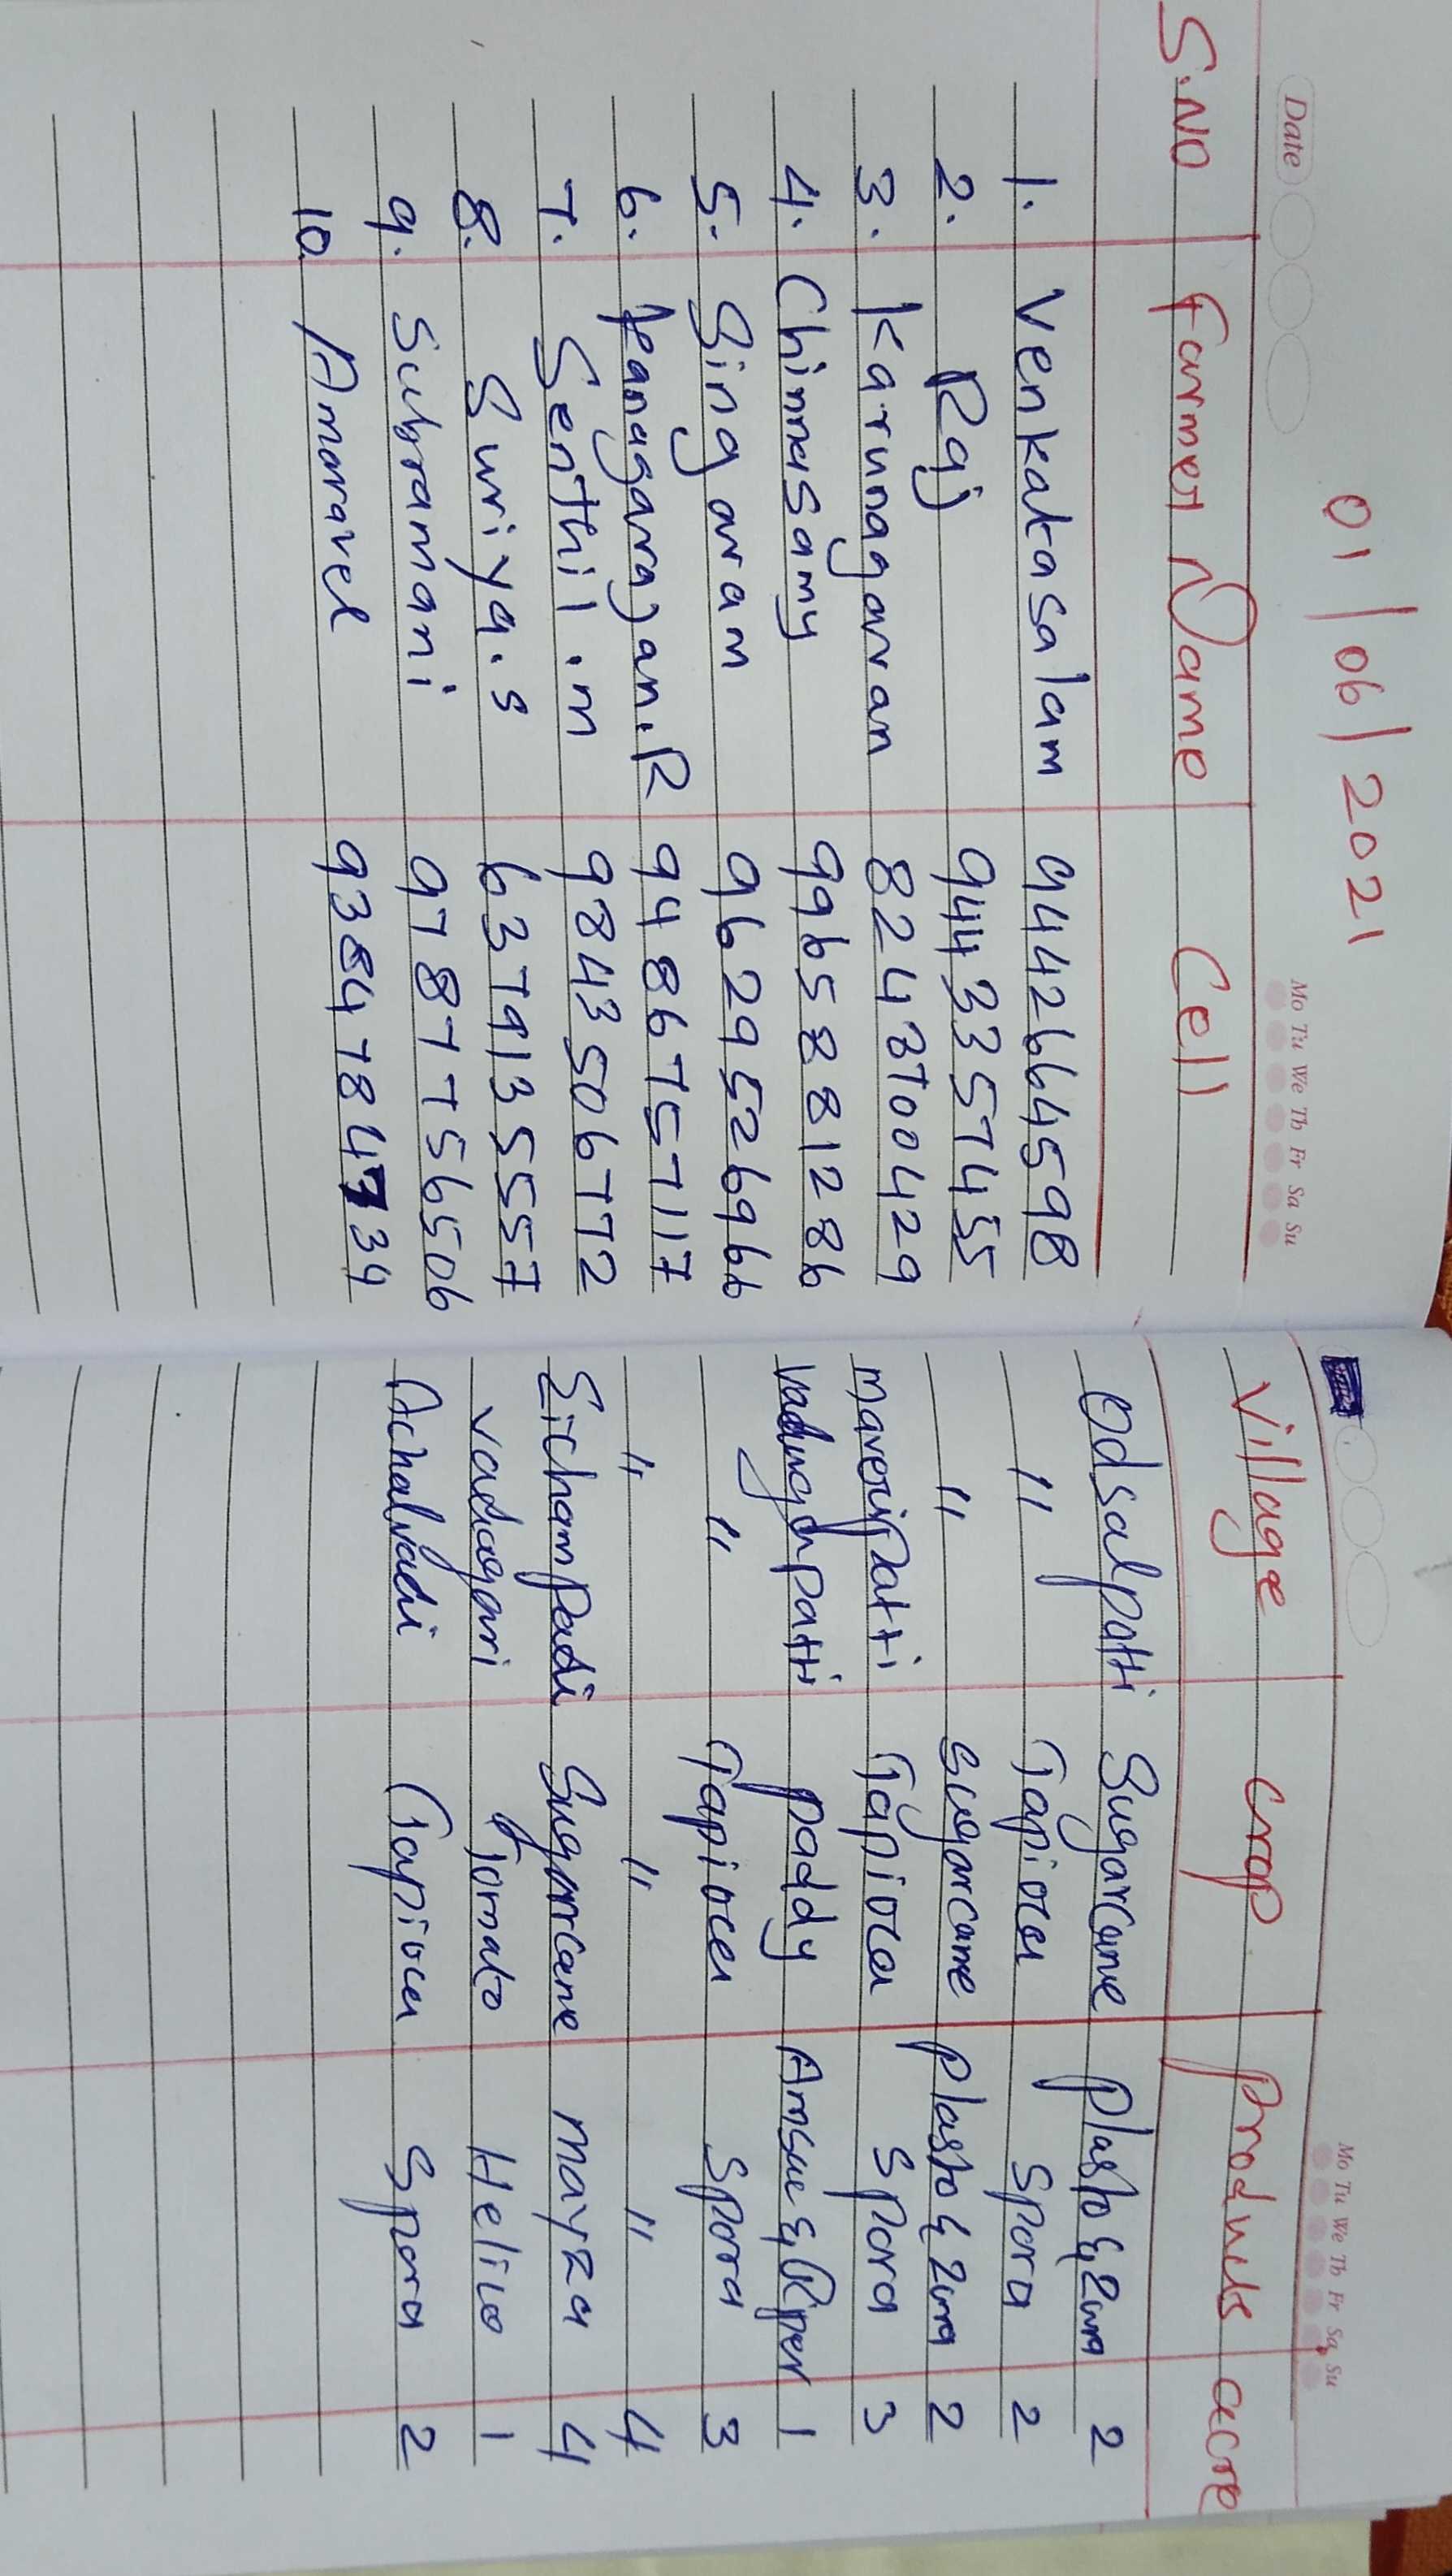 01/06/2021
Date Mo Tu We Th Fr Sa Su Mo Tu We Th Fr Sa Su
S.NO Farmer Name Cell Village Crop Products acre
1. Venkatasalam 9442664598 Odsalpatti Sugarcane Plasto & Zum 2
2. Raj 9443357455 " Tapioca Spora 2
3. Karunagaran 8248700429 " sugarcane plasto & Zum 2
4. Chinnasamy 9965881286 maveripatti Tapioca Spora 3
5. Singaram 9629526966 vadugapatti paddy Amsue & Riper 1
6. kanagarajan.R 9486757117 " Tapioca Spora 3
7. Senthil.m 9843506772 " " " 4
8. Suriya.s 6379135557 Eichampadi Sugarcane mayza 4
9. Subramani 9787756506 vadagari Tomato Helico 1
10. Amaravel 9384784734 Achalvadi Tapioca Spora 2